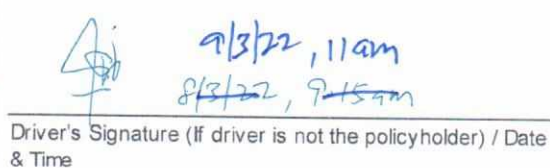 9/3/22, 11am
8/3/22, 9.15am
Driver's Signature (If driver is not the policyholder) / Date
& Time